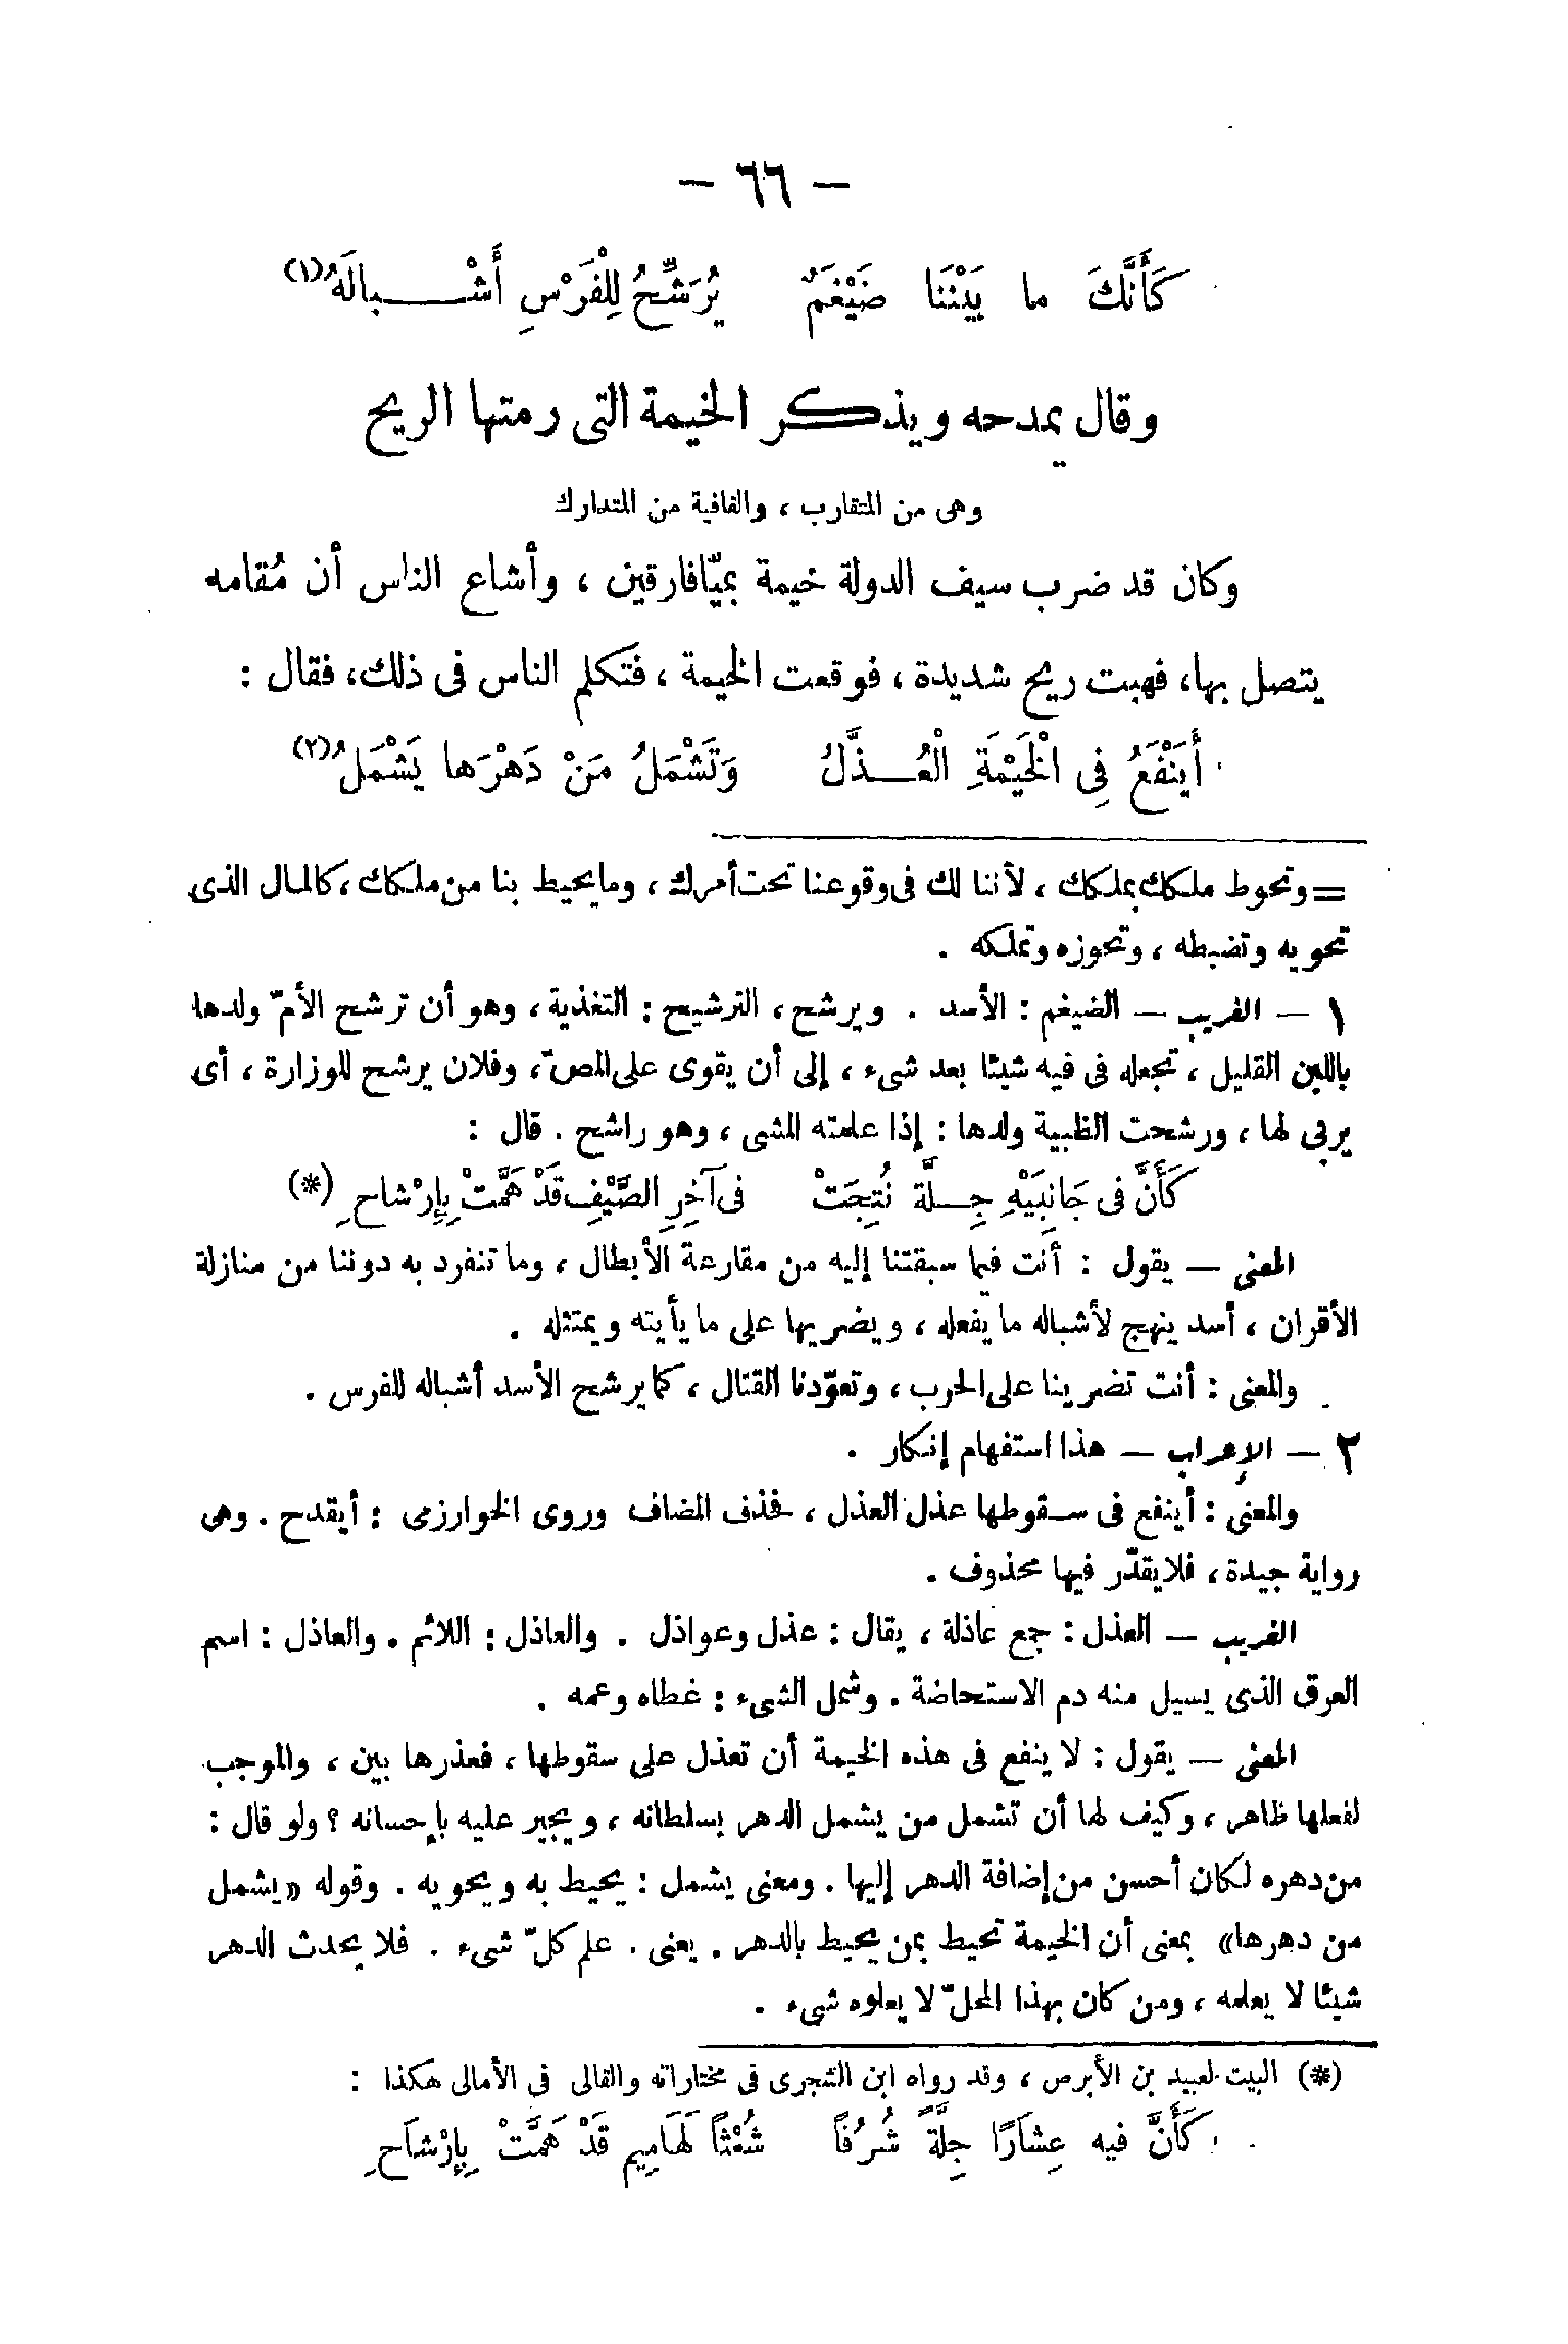 — ٦٦ —
كَأَنَّكَ ما بَيْنَنَا ضَيْغَمٌ يُرَشِّحُ لِلْفَرْسِ أَشْــبالَهُ(١)
وقال يمدحه ويذكر الخيمة التى رمتها الريح
وهى من المتقارب ، والقافية من المتدارك
وكان قد ضرب سيف الدولة خيمة بميّافارقين ، وأشاع الناس أن مُقامه
يتصل بها، فهبت ريح شديدة ، فوقعت الخيمة ، فتكلم الناس فى ذلك، فقال :
أَيَنْفَعُ فِى الْخَيْمَةِ الْعُــذَّلُ وَتَشْمَلُ مَنْ دَهْرَها يَشْمَلُ(٢)
= وتحوط ملكك بملكك ، لأننا لك فى وقوعنا تحت أمرك ، وما يحيط بنا من ملكك ، كالمال الذى
تحويه وتضبطه ، وتحوزه وتملكه .
١ — الغريب — الضيغم : الأسد . ويرشح ، الترشيح : التغذية ، وهو أن ترشح الأمّ ولدها
باللبن القليل ، تجعله فى فيه شيئا بعد شىء ، إلى أن يقوى على المصّ ، وفلان يرشح للوزارة ، أى
يربى لها ، ورشحت الظبية ولدها : إذا علمته المشى ، وهو راشح . قال :
كَأَنَّ فى جَانِبَيْهِ جِــلَّةً نُتِجَتْ فى آخِرِ الصَّيْفِ قَدْ هَمَّتْ بِإِرْشاحِ (*)
المعنى — يقول : أنت فيما سبقتنا إليه من مقارعة الأبطال ، وما تنفرد به دوننا من منازلة
الأقران ، أسد ينهج لأشباله ما يفعله ، ويضريها على ما يأيته ويمتثله .
والمعنى : أنت تضرينا على الحرب ، وتعوّدنا القتال ، كما يرشح الأسد أشباله للفرس .
٢ — الإعراب — هذا استفهام إنكار .
والمعنى : أينفع فى سقوطها عذل العذل ، فحذف المضاف وروى الخوارزمى : أيقدح . وهى
رواية جيدة ، فلا يقدّر فيها محذوف .
الغريب — العذل : جمع عاذلة ، يقال : عذل وعواذل . والعاذل : اللائم . والعاذل : اسم
العرق الذى يسيل منه دم الاستحاضة . وشمل الشىء : غطاه وعمه .
المعنى — يقول : لا ينفع فى هذه الخيمة أن تعذل على سقوطها ، فعذرها بين ، والموجب
لفعلها ظاهر ، وكيف لها أن تشمل من يشمل الدهر بسلطانه ، ويجير عليه بإحسانه ؟ ولو قال :
من دهره لكان أحسن من إضافة الدهر إليها . ومعنى يشمل : يحيط به ويحويه . وقوله «يشمل
من دهرها» بمعنى أن الخيمة تحيط بمن يحيط بالدهر . يعنى . علم كلّ شىء . فلا يحدث الدهر
شيئا لا يعلمه ، ومن كان بهذا المحلّ لا يعلوه شىء .
(*) البيت لعبيد بن الأبرص ، وقد رواه ابن الشجرى فى مختاراته والقالى فى الأمالى هكذا :
كَأَنَّ فيه عِشَارًا جِلَّةً شُرُفاً شُعْثاً لَهَامِيم قَدْ هَمَّتْ بِإِرْشَاحِ